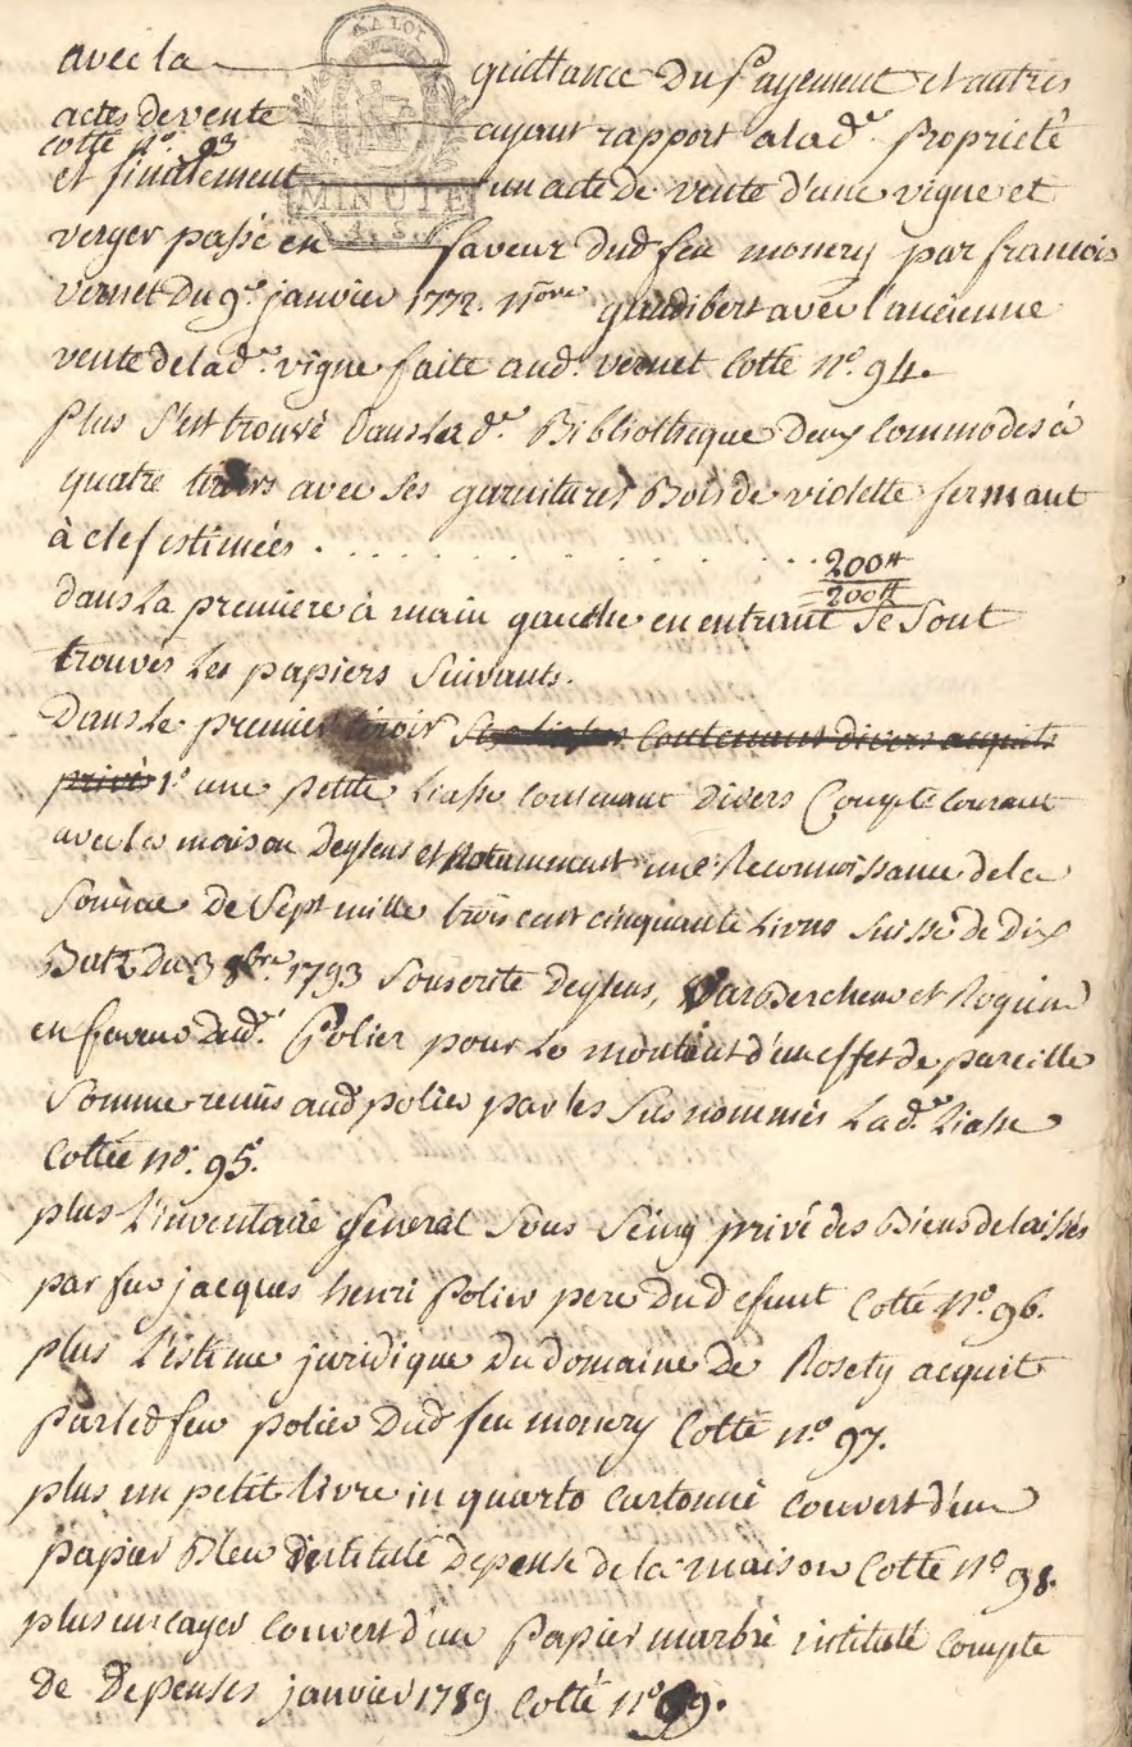 LA LOI
MINUTE
avec la quittance du payement et autres
actes de vente ayant rapport a lad.e Propriété
cotté n.o 93
et finalement un acte de vente d'une vigne et
verger passé en faveur dud feu monery par francois
vernet du 9.e janvier 1772. n.ore gaudibert avec l'ancienne
vente de lad.e vigne faite aud. vernet Cotté n.o 94.
Plus s'est trouvé dans lad.e Bibliotheque deux Commodes à
quatre tiroirs avec ses garnitures Bois de violette fermant
à clef estimées . . . . . . . . . 200 ₶
200 ₶
dans La premiere à main gauche en entrant se sont
trouvés Les papiers suivants.
Dans Le premier tiroir contenant divers acquits
privés 1.o une petite Liasse contenant divers Compte Courant
avec la maison Deylens et notamment une Reconnoissance de la
somme de sept mille trois cent cinquante Livres suisse de dix
Batz du 3 8bre. 1793 souscrite Deylens, et Roguin
en faveur dud. Polier pour Le montant d'un effet de pareille
somme remis aud polier par les sus nommés Lad.e Liasse
Cottée n.o 95.
plus L'inventaire general sous seing privé des Biens delaissés
par feu jacques henri Polier pere du defunt Cotté n.o 96.
plus L'estime juridique du domaine de Rosety acquit
par led feu polier dud feu monery Cotté n.o 97.
plus un petit livre in quarto cartonné couvert d'un
papier Bleu intitulé depense de la maison Cotté n.o 98.
plus un cayer couvert d'un papier marbré intitulé compte
de depenses janvier 1789 Cotté n.o 99.